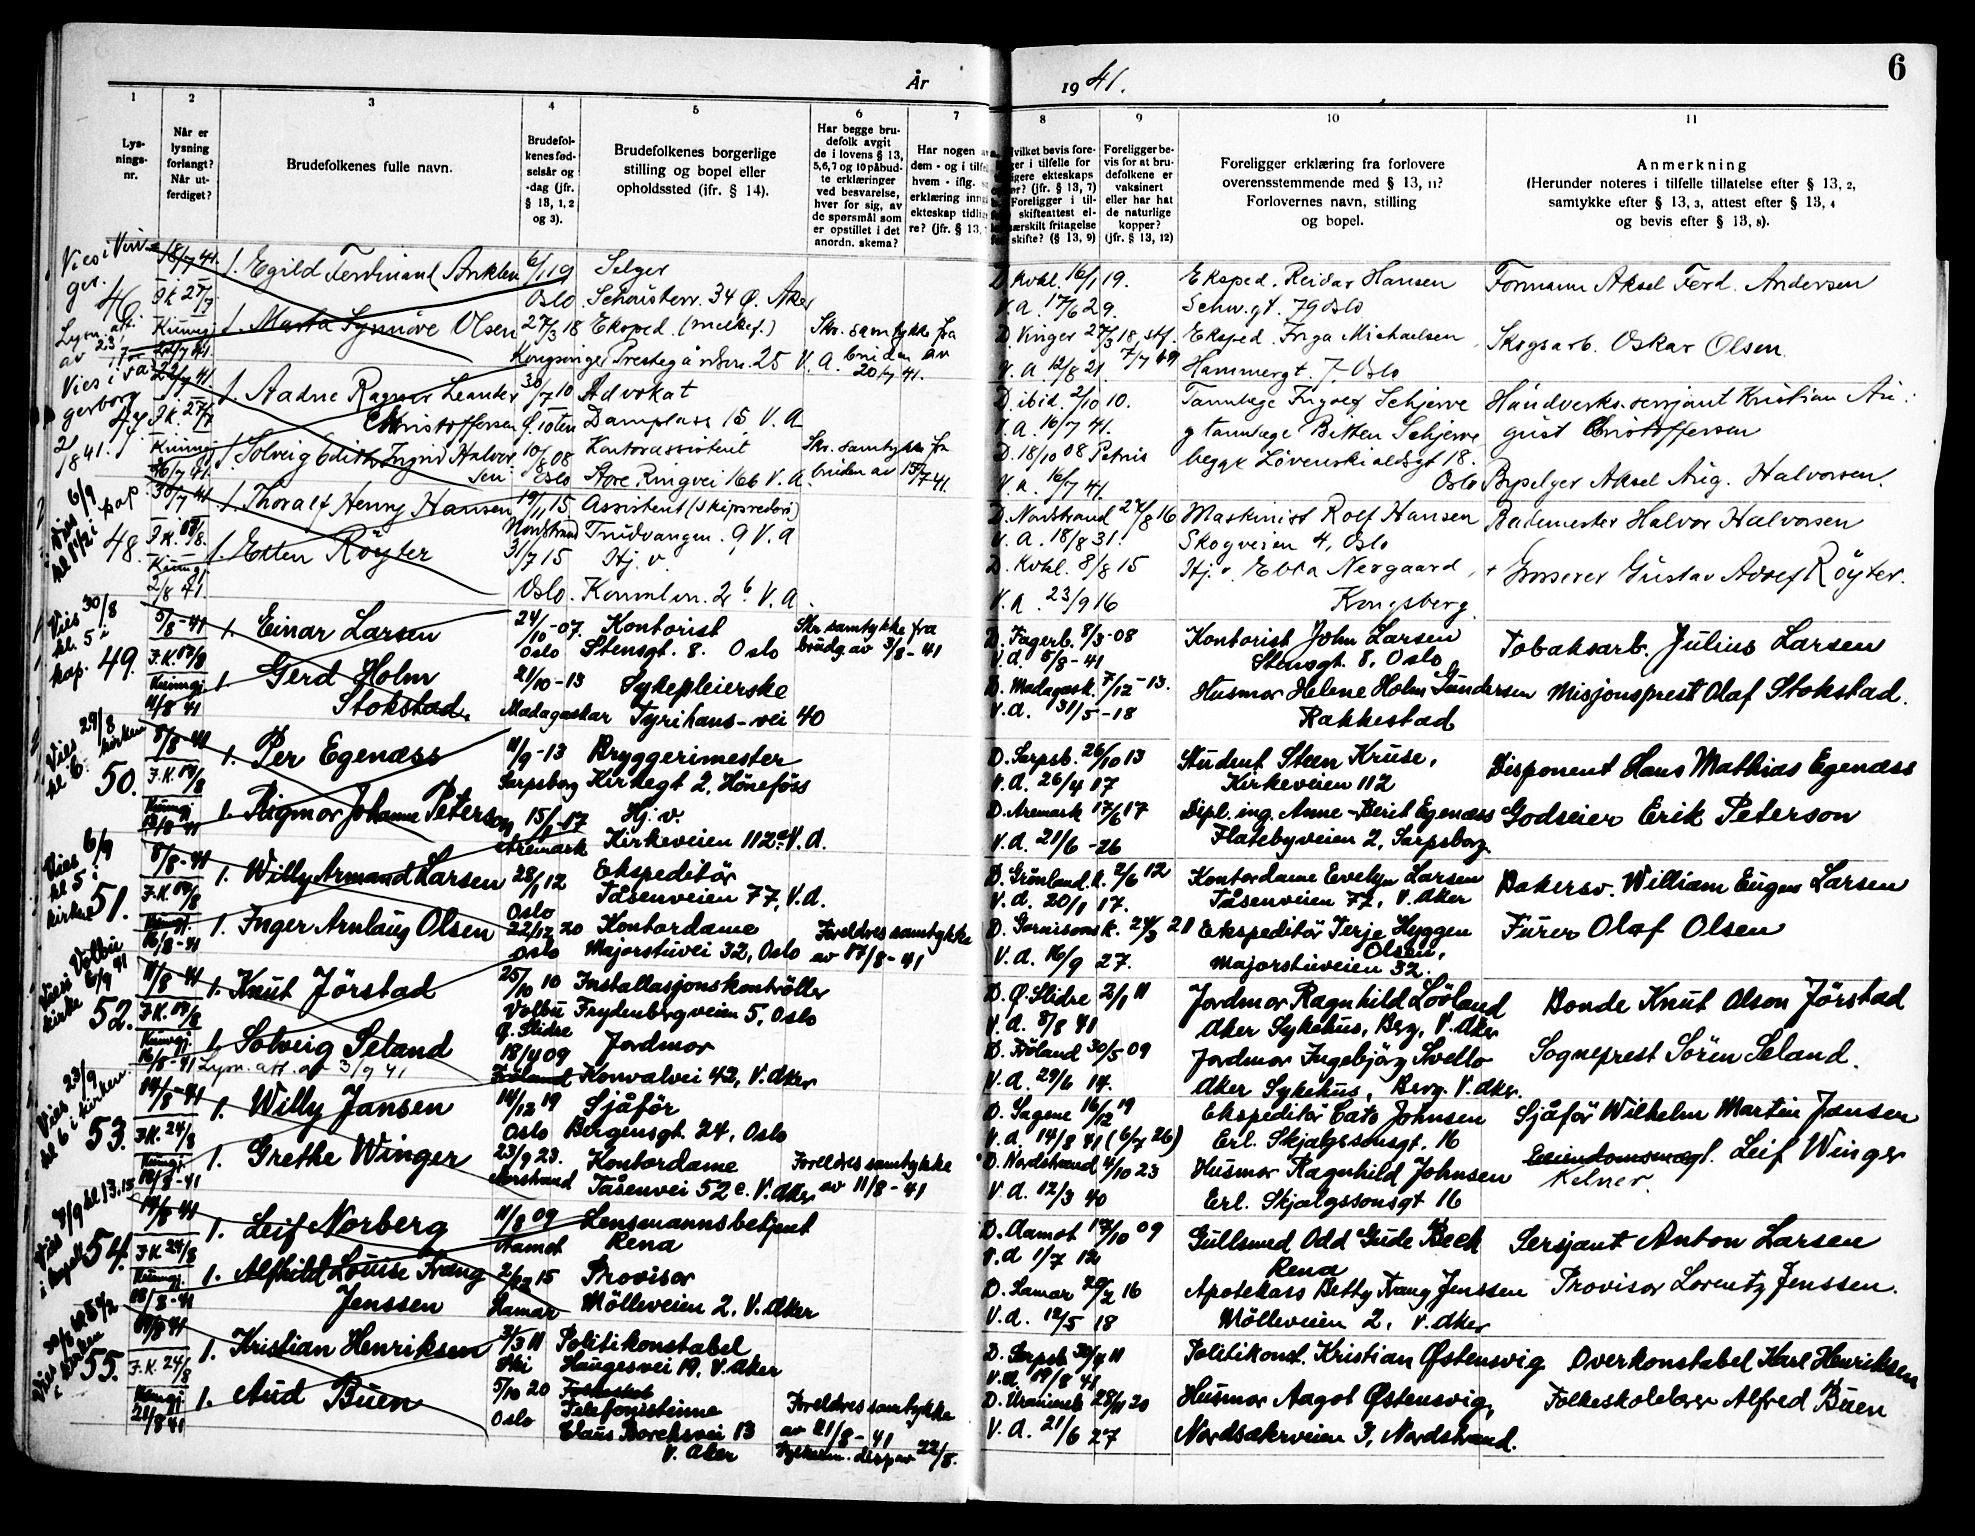 6
År 1941.
1 2 3 4 5 6 7 8 9 10 11
Lys-
nings-
nr.
Når er
lysning
forlangt?
Når ut-
ferdiget?
Brudefolkenes fulle navn.
Brudefol-
kenes fød-
selsår og
-dag (jfr.
§ 13, 1, 2
og 3).
Brudefolkenes borgerlige
stilling og bopel eller
opholdssted (ifr. § 14).
Har begge bru-
defolk avgit
de i lovens § 13,
5,6,7 og 10 påbud-
te erklæringer
ved besvarelse,
hver for sig, av
de spørsmål som
er opstillet i det
anordn. skema?
Har nogen
dem - og i tilfe
hvem - iflg.
erklæring inng
ekteskap tidli
re? (jfr. § 13,
vilket bevis fore-
ger i tilfelle for
igere ekteskaps
r? (jfr. § 13, 7)
Foreligger i til-
skifteattest el-
ærskilt fritagelse
skifte? (§ 13, 9)
Foreligger be-
vis for at bru-
defolkene er
vaksinert
eller har hat
de naturlige
kopper?
(jfr. § 13, 12)
Foreligger erklæring fra forlovere
overensstemmende med § 13, 11?
Forlovernes navn, stilling
og bopel.
Anmerkning
(Herunder noteres i tilfelle tillatelse efter § 13, 2,
samtykke efter § 13, 3, attest efter § 13, 4
og bevis efter § 13, 8).
46. 18/7 41. 1. Egild Ferdinand 6/1 19 Selger D. Kvkl. 16/1 19. Eksped. Reidar Hansen Formann Aksel Ferd. Andersen
F.K. 27/7 Oslo V.A. 17/6 29. Schw.gt. 79 Oslo
Kunngj. 1. Marta Synnöve Olsen 27/3 18 Eksped. Skr. samtykke fra D. Vinger 27/3 18 Eksped. Inga Michaelsen Skogsarb. Oskar Olsen.
Kongsvinger Prestegårdsvn. 25 V.A. bruden av 20/7 41. V.A. 12/8 21. Hammergt. 7, Oslo
47. 22/7 41. 1. Aadne Ragnar Leander 30/7 10 Advokat D. ibid. 2/10 10. Tannlege Ingolf Schjerve Håndverks.serjant Kristian Au-
F.K. 27/7 Christoffersen Ö. Toten Damplass 15 V.A. V.A. 16/7 41. og tannlege Betten Schjerve gust Christoffersen
Kunngj. 1. Solveig Edith Ingrid Halvor 10/8 08 Kontorassistent Skr. samtykke fra D. 18/10 08 Petrus begge Løvenskioldsgt 18.
sen Oslo Store Ringvei 166 V.A. bruden av 15/7 41. V.A. 16/7 41. Oslo Bypelger Aksel Aug. Halvorsen.
48. 30/7 41 1. Thoralf Henry Hansen 19/11 15 Assistent (Skipsrederi) D. Nordstrand 27/8 16 Maskinist Rolf Hansen Bademester Halvor Halvorsen
Nordstrand Trudvangvn. 9, V.A V.A. 18/8 31. Skogveien 4, Oslo
Kunngj. 1. Esten Röyter 31/7 15 Hj. v. D. Kvkl. 8/8 15 Hj. v. Ebba Nergaard, Grosserer Gustav Adolf Röyter.
2/8 41 Oslo. Konvalvn. 26 V.A. V.A. 23/9 16 Kongsberg.
Vies 30/8 kl. 5 i kap. 49. 5/8-41 1. Einar Larsen 24/10-07. Kontorist Skr. samtykke fra D. Fagerb. 8/3-08 Kontorist John Larsen Tobaksarb. Julius Larsen
Oslo Stensgt. 8. Oslo brudg. av 3/8-41 V.A. 5/8-41 Stensgt. 8, Oslo
Kunngj. 1. Gerd Holm 21/10-13 Sykepleierske D. Madagask. 7/12-13. Husmor Helene Holm Gundersen Misjonsprest Olaf Stokstad.
11/8 41 Stokstad. Madagaskar Tyrihans-vei 40 V.A. 31/5-18 Rakkestad
Vies 29/8 kl. 6 kirken 50. 8/8-41 1. Per Egenæss 11/9-13 Bryggerimester D. Sarpsb. 26/10 13 Student Steen Kruse, Disponent Hans Mathias Egenæss
Sarpsborg Kirkegt 2, Hönefoss V.A. 26/4 17 Kirkeveien 112
Kunngj. 1. Rigmor Johanne Peterson Hj. v. D. Aremark 17/6 17 Dipl. ing. Anne-Berit Egenæss Godseier Erik Peterson
Aremark Kirkeveien 112 V.A. V.A. 21/6-26 Flatebyveien 2, Sarpsborg
Vies 6/9 kl 5 i kirken 51. 8/8-41 1. Willy Armand Larsen 28/1 12 Ekspeditör D. Grönland. k. 2/6 12 Kontordame Evelyn Larsen Bakersv. William Eugen Larsen
Oslo Tåsenveien 77, V.A. V.A. 20/1 17. Tåsenveien 77, V. Aker
Kunngj. 1. Inger Arnlaug Olsen 22/12 20 Kontordame Foreldres samtykke D. Garnisons k. 27/3 21 Ekspeditör Terje Hyggen Furer Olaf Olsen
16/8-41 Oslo Majorstuvei 32, Oslo av 17/8-41 V.A. 16/9 27. Olsen, Majorstuveien 32.
Vies i Volbu kirke 6/9 41 52. 11/8-41 1. Knut Jörstad 25/10 10 Installasjonskontröllör D. Ö. Slidre 2/1 11 Jordmor Ragnhild Lövland Bonde Knut Olson Jörstad
Volbu Ö. Slidre Frydenbergveien 5, Oslo V.A. 8/8 41 Aker Sykehus, Berg, V. Aker
Kunngj. 1. Solveig Seland 18/4 09 Jordmor D. Fröland 30/5 09 Jordmor Ingebjörg Svello Sogneprest Sören Seland.
16/8-41 Lysn. att. av 3/9 41 Fröland Konvalvei 42, V. Aker V.A. 29/6 14. Aker Sykehus, Berg, V. Aker.
Vies 23/9 kl 6 i kirken. 53. 14/8-41 1. Willy Jansen 14/12 19 Sjåför D. Sagene 16/12 19 Ekspeditör Cato Johnsen Sjåför Wilhelm Martin Jansen
F.K. 24/8 Oslo Bergensgt. 24, Oslo V.A. 14/8 41 (6/7 26) Erl. Skjalgssonsgt. 16
Kunngj. 1. Grethe Winger 23/9 23. Kontordame Foreldres samtykke D. Nordstrand 4/10 23 Husmor Ragnhild Johnsen Eiendomsmegl. Leif Winger
Norstrand Tåsenvei 52 c. V. Aker av 11/8-41 V.A. 12/3 40 Erl. Skjalgssonsgt 16 Kelner.
Vies 7/9 kl 13.15 i kapell 54. 14/8-41 1. Leif Norberg 11/8 09 Lensmannsbetjent D. Aamot 17/10 09 Gullsmed Odd Gude Beck Sersjant Anton Larsen
F.K. 24/8 Aamot Rena V.A 1/7 12 Rena
Kunngj. 1. Alfhild Louise Trang 2/12 15 Provisor D. Hamar 20/2 16 Apotekass Betty Trang Jenssen Provisor Lorentz Jenssen.
18/8-41 Jenssen Hamar Mölleveien 2, V. Aker V.A. 12/5 18 Mölleveien 2, V. Aker
i kirken 55. 1. Kristian Henriksen 3/3 11 Politikonstabel D. Sarpsb 30/4 11 Politikonst. Kristian Østensvig Overkonstabel Karl Henriksen
F.K. 24/8 Ski Haugesvei 19, V. Aker V.A. 19/8 41
Kunngj. 1. Aud Buen 5/10 20 Telefonistinne Foreldres samtykke D. Uranienb 28/11 20 Husmor Aagot Østensvig, Folkeskolelærer Alfred Buen
21/8 41 Oslo Claus Borchsvei 13 av 21/8-41 V.A. 21/6 27 Nordsækerveien 3, Nordstrand.
V. Aker 22/8.